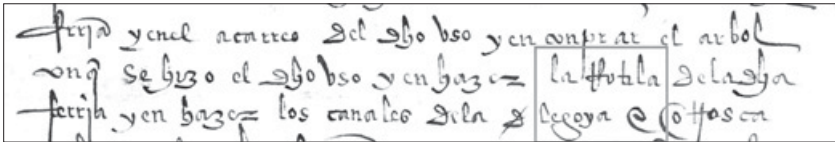 ferria y en el acarreo del dho vso y en conprar el arbol
con q se hizo el dho vso y en hazer la ffotila de la dha
ferria y en hazer los canales de la legoya e